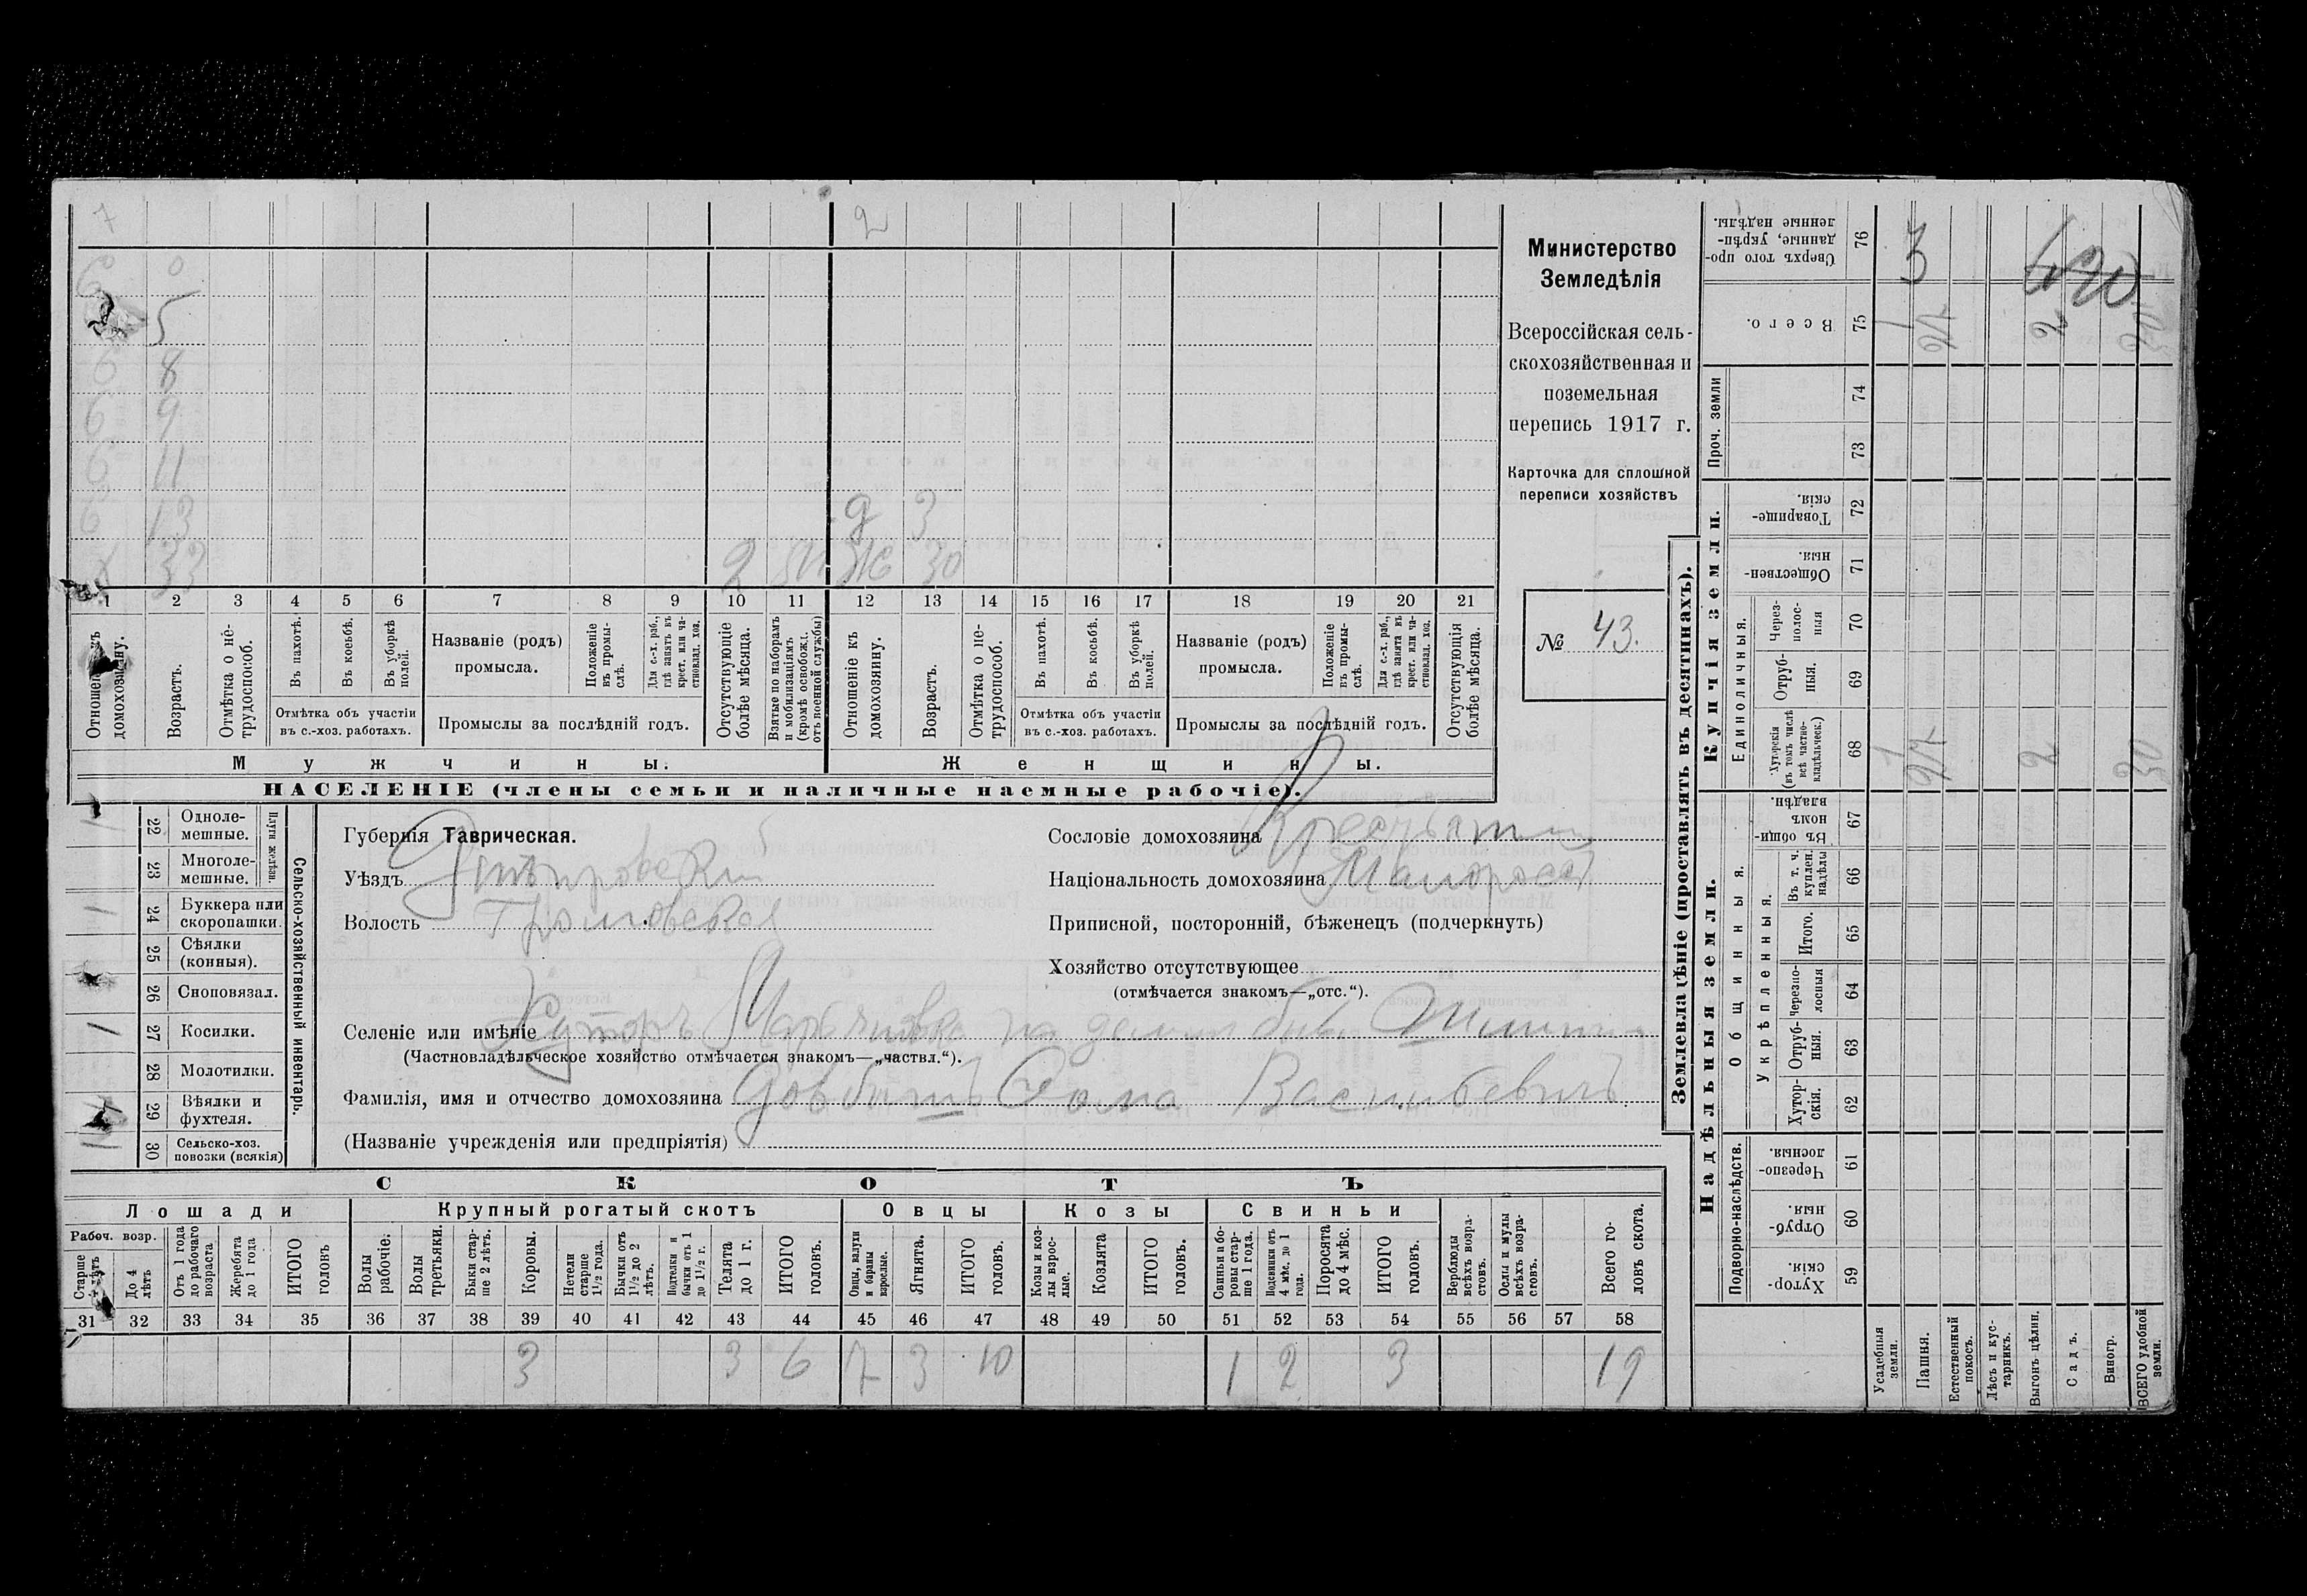 7 2
6 0
2 5
6 8
6 9
6 11
6 13 д 3
х 33 2 ж 30
1 2 3 4 5 6 7 8 9 10 11 12 13 14 15 16 17 18 19 20 21
Отношеніе къ домохозяину.
Возрастъ.
Отмѣтка о не-трудоспособ.
Въ пахотѣ.
Въ косьбѣ.
Въ уборкѣ полей.
Отмѣтка объ участіи въ с.-хоз. работахъ.
Названіе (родъ) промысла.
Положеніе въ промы-слѣ.
Для с.-х. раб., гдѣ занятъ въ крест. или ча-стновлад. хоз.
Промыслы за послѣдній годъ.
Отсутствующіе болѣе мѣсяца.
Взятые по наборамъ и мобилизаціямъ (кромѣ освобожд. отъ военной службы)
Отношеніе къ домохозяину.
Возрастъ.
Отмѣтка о не-трудоспособ.
Въ пахотѣ.
Въ косьбѣ.
Въ уборкѣ полей.
Отмѣтка объ участіи въ с.-хоз. работахъ.
Названіе (родъ) промысла.
Положеніе въ промы-слѣ.
Для с.-х. раб., гдѣ занята въ крест. или ча-стновлад. хоз.
Промыслы за послѣдній годъ.
Отсутствующія болѣе мѣсяца.
Мужчины.
Женщины.
НАСЕЛЕНІЕ (члены семьи и наличные наемные рабочіе).
Министерство
Земледѣлія
Всероссійская сель-
скохозяйственная и
поземельная
перепись 1917 г.
Карточка для сплошной
переписи хозяйствъ
№ 43.
22 Одноле-мешные.
23 Многоле-мешные.
Плуги желѣзн.
24 Буккера или скоропашки.
25 Сѣялки (конныя).
26 Сноповязал.
27 Косилки.
28 Молотилки.
29 Вѣялки и фухтеля.
30 Сельско-хоз. повозки (всякія)
Сельско-хозяйственный инвентарь.
Губернія Таврическая.
Уѣздъ Днѣпровскій
Волость Громовская
Сословіе домохозяина Крестьянин
Національность домохозяина Малоросс
Приписной, посторонній, бѣженецъ (подчеркнуть)
Хозяйство отсутствующее
(отмѣчается знакомъ—„отс.“).
Селеніе или имѣніе Хуторъ
(Частновладѣльческое хозяйство отмѣчается знакомъ—„частвл.“).
Фамилія, имя и отчество домохозяина Довбышъ Фома Васильевичъ
(Названіе учрежденія или предпріятія)
СКОТЪ
Лошади
Крупный рогатый скотъ
Овцы
Козы
Свиньи
Рабоч. возр.
Старше 4 лѣтъ
До 4 лѣтъ
Отъ 1 года до рабочаго возраста
Жеребята до 1 года
ИТОГО головъ
Волы рабочіе.
Волы третьяки.
Быки стар-ше 2 лѣтъ.
Коровы.
Нетели старше 1½ года.
Бычки отъ 1½ до 2 лѣтъ.
Подтелки и бычки отъ 1 до 1½ г.
Телята до 1 г.
ИТОГО головъ.
Овцы, валухи и бараны взрослые.
Ягнята.
ИТОГО головъ.
Козы и коз-лы взрос-лые.
Козлята
ИТОГО головъ.
Свиньи и бо-ровы стар-ше 1 года.
Подсвинки отъ 4 мѣс. до 1 года.
Поросята до 4 мѣс.
ИТОГО головъ.
Верблюды всѣхъ возра-стовъ.
Ослы и мулы всѣхъ возра-стовъ.
Всего го-ловъ скота.
31 32 33 34 35 36 37 38 39 40 41 42 43 44 45 46 47 48 49 50 51 52 53 54 55 56 57 58
3 3 6 7 3 10 1 2 3 19
Землевладѣніе (проставлять въ десятинахъ).
Надѣльныя земли.
Купчія земли.
Проч. земли
Подворно-наслѣдств.
Общинныя.
Укрѣпленныя.
Единоличныя.
Хутор-скія. 59
Отруб-ныя. 60
Черезпо-лосныя. 61
Хутор-скія. 62
Отруб-ныя. 63
черезпо-лосныя 64
Итого. 65
Въ т. ч. куплен. надѣлы 66
Въ общи-номъ владѣн. 67
Хуторскія (въ томъ числѣ всѣ частно-владѣльческ.) 68
Отруб-ныя. 69
Через-полос-ныя 70
Обществен-ныя. 71
Товарище-скія. 72
73
74
Всего. 75
Сверхъ того про-данные, укрѣп-ленные надѣлы. 76
Усадебныя земли.
Пашня.
Естественный покосъ.
Лѣсъ и кус-тарникъ.
Выгонъ цѣлин.
Садъ.
Виногр.
ВСЕГО удобной земли.
1 27 2 30
1 27 2 30
3